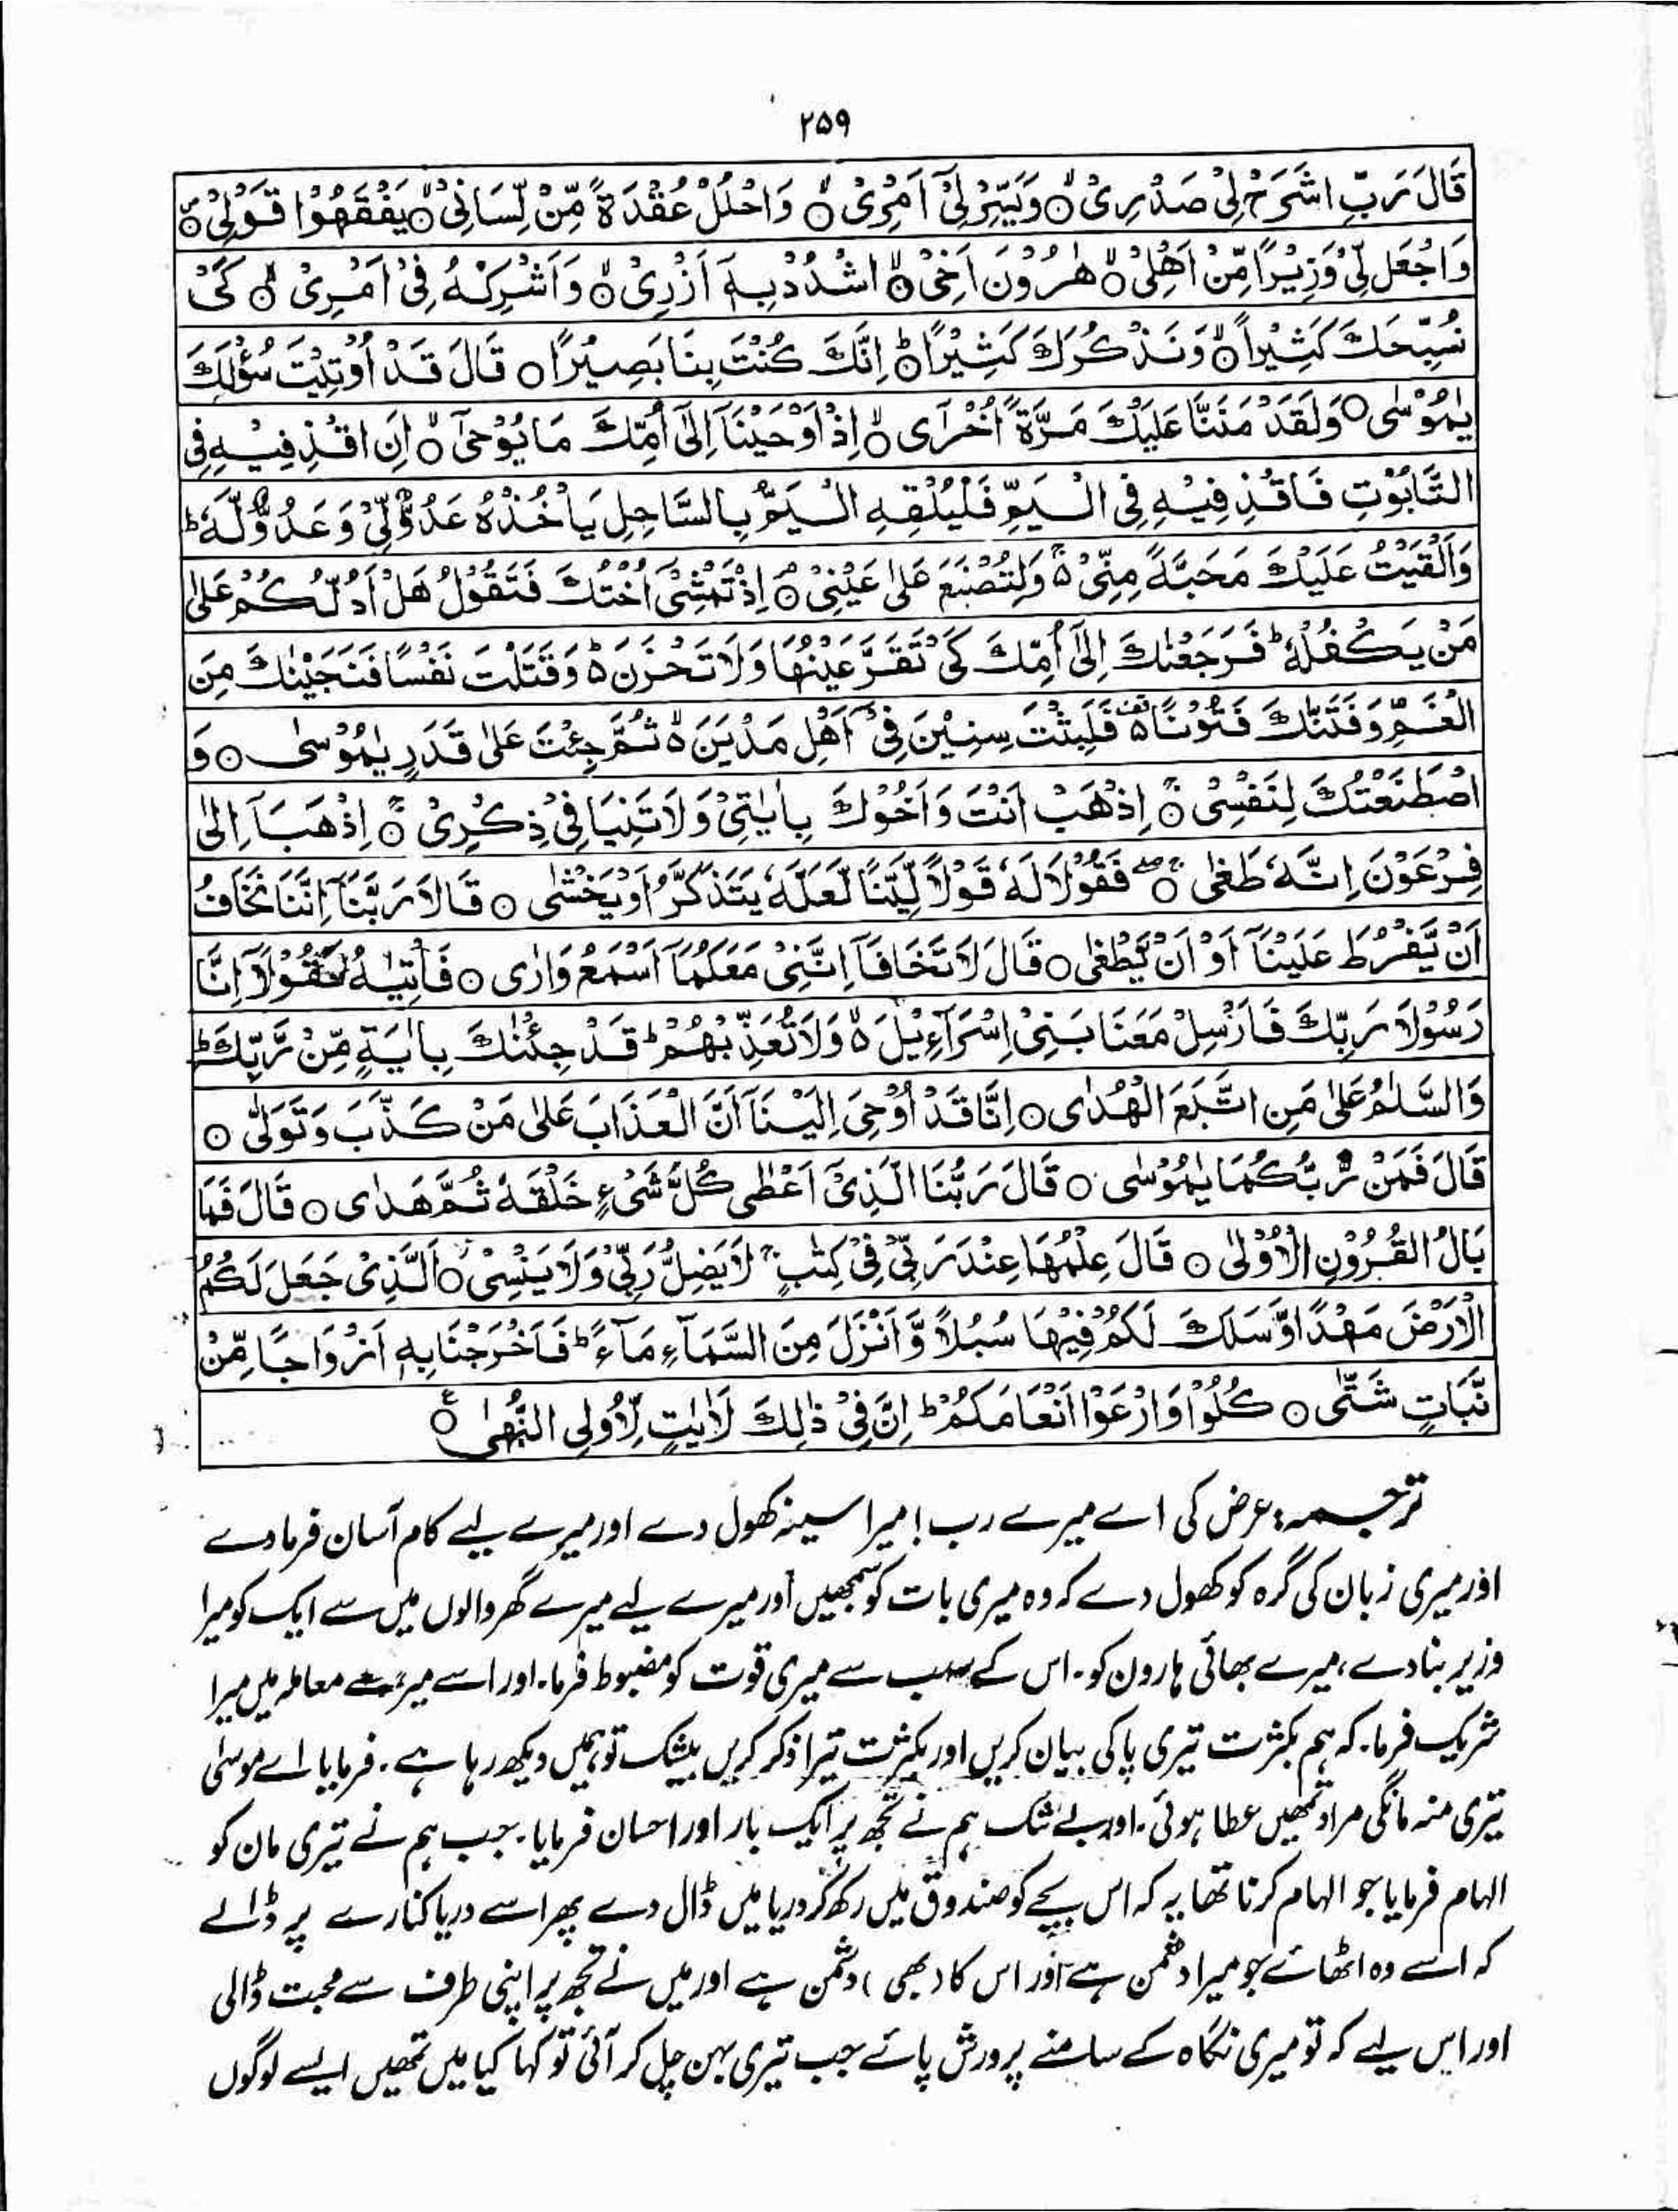 ۲۵۹
قَالَ رَبِّ اشْرَحْ لِیْ صَدْرِیْ ۙ○ وَیَسِّرْ لِیْۤ اَمْرِیْ ۙ○ وَاحْلُلْ عُقْدَةً مِّنْ لِّسَانِیْ ۙ○ یَفْقَهُوْا قَوْلِیْ ○
وَاجْعَل لِّیْ وَزِیْرًا مِّنْ اَهْلِیْ ۙ○ هٰرُوْنَ اَخِیْ ۙ○ اشْدُدْ بِهٖۤ اَزْرِیْ ۙ○ وَاَشْرِكْهُ فِیْۤ اَمْرِیْ ۙ○ كَیْ
نُسَبِّحَكَ كَثِیْرًا ۙ○ وَّنَذْكُرَكَ كَثِیْرًا ؕ○ اِنَّكَ كُنْتَ بِنَا بَصِیْرًا ○ قَالَ قَدْ اُوْتِیْتَ سُؤْلَكَ
یٰمُوْسٰی ○ وَلَقَدْ مَنَنَّا عَلَیْكَ مَرَّةً اُخْرٰۤی ۙ○ اِذْ اَوْحَیْنَاۤ اِلٰۤی اُمِّكَ مَا یُوْحٰۤی ۙ○ اَنِ اقْذِفِیْهِ فِی
التَّابُوْتِ فَاقْذِفِیْهِ فِی الْیَمِّ فَلْیُلْقِهِ الْیَمُّ بِالسَّاحِلِ یَاْخُذْهُ عَدُوٌّ لِّیْ وَعَدُوٌّ لَّهٗ ؕ
وَاَلْقَیْتُ عَلَیْكَ مَحَبَّةً مِّنِّیْ ۚ۬ وَلِتُصْنَعَ عَلٰی عَیْنِیْ ۘ○ اِذْ تَمْشِیْۤ اُخْتُكَ فَتَقُوْلُ هَلْ اَدُلُّكُمْ عَلٰی
مَنْ یَّكْفُلُهٗ ؕ فَرَجَعْنٰكَ اِلٰۤی اُمِّكَ كَیْ تَقَرَّ عَیْنُهَا وَلَا تَحْزَنَ ۬ؕ وَقَتَلْتَ نَفْسًا فَنَجَّیْنٰكَ مِنَ
الْغَمِّ وَفَتَنّٰكَ فُتُوْنًا ۬۫ فَلَبِثْتَ سِنِیْنَ فِیْۤ اَهْلِ مَدْیَنَ ۬ۙ ثُمَّ جِئْتَ عَلٰی قَدَرٍ یّٰمُوْسٰی ○ وَ
اصْطَنَعْتُكَ لِنَفْسِیْ ۚ○ اِذْهَبْ اَنْتَ وَاَخُوْكَ بِاٰیٰتِیْ وَلَا تَنِیَا فِیْ ذِكْرِیْ ۚ○ اِذْهَبَاۤ اِلٰی
فِرْعَوْنَ اِنَّهٗ طَغٰی ۚۖ○ فَقُوْلَا لَهٗ قَوْلًا لَّیِّنًا لَّعَلَّهٗ یَتَذَكَّرُ اَوْ یَخْشٰی ○ قَالَا رَبَّنَاۤ اِنَّنَا نَخَافُ
اَنْ یَّفْرُطَ عَلَیْنَاۤ اَوْ اَنْ یَّطْغٰی ○ قَالَ لَا تَخَافَاۤ اِنَّنِیْ مَعَكُمَاۤ اَسْمَعُ وَاَرٰی ○ فَاْتِیٰهُ فَقُوْلَاۤ اِنَّا
رَسُوْلَا رَبِّكَ فَاَرْسِلْ مَعَنَا بَنِیْۤ اِسْرَآءِیْلَ ۬ۙ وَلَا تُعَذِّبْهُمْ ؕ قَدْ جِئْنٰكَ بِاٰیَةٍ مِّنْ رَّبِّكَ ؕ
وَالسَّلٰمُ عَلٰی مَنِ اتَّبَعَ الْهُدٰی ○ اِنَّا قَدْ اُوْحِیَ اِلَیْنَاۤ اَنَّ الْعَذَابَ عَلٰی مَنْ كَذَّبَ وَتَوَلّٰی ○
قَالَ فَمَنْ رَّبُّكُمَا یٰمُوْسٰی ○ قَالَ رَبُّنَا الَّذِیْۤ اَعْطٰی كُلَّ شَیْءٍ خَلْقَهٗ ثُمَّ هَدٰی ○ قَالَ فَمَا
بَالُ الْقُرُوْنِ الْاُوْلٰی ○ قَالَ عِلْمُهَا عِنْدَ رَبِّیْ فِیْ كِتٰبٍ ۚ لَا یَضِلُّ رَبِّیْ وَلَا یَنْسٰی ۙ○ الَّذِیْ جَعَلَ لَكُمُ
الْاَرْضَ مَهْدًا وَّسَلَكَ لَكُمْ فِیْهَا سُبُلًا وَّاَنْزَلَ مِنَ السَّمَآءِ مَآءً ؕ فَاَخْرَجْنَا بِهٖۤ اَزْوَاجًا مِّنْ
نَّبَاتٍ شَتّٰی ○ كُلُوْا وَارْعَوْا اَنْعَامَكُمْ ؕ اِنَّ فِیْ ذٰلِكَ لَاٰیٰتٍ لِّاُولِی النُّهٰی ○ع
ترجمہ: عرض کی اے میرے رب! میرا سینہ کھول دے اور میرے لیے کام آسان فرما دے
اور میری زبان کی گرہ کو کھول دے کہ وہ میری بات کو سمجھیں اور میرے لیے میرے گھر والوں میں سے ایک کو میرا
وزیر بنا دے، میرے بھائی ہارون کو۔ اس کے سبب سے میری قوت کو مضبوط فرما۔ اور اسے میرے معاملہ میں میرا
شریک فرما۔ کہ ہم بکثرت تیری پاکی بیان کریں اور بکثرت تیرا ذکر کریں بیشک تو ہمیں دیکھ رہا ہے۔ فرمایا اے موسیٰ
تیری منہ مانگی مراد تمھیں عطا ہوئی۔ اور بے شک ہم نے تجھ پر ایک بار اور احسان فرمایا۔ جب ہم نے تیری مان کو
الہام فرمایا جو الہام کرنا تھا یہ کہ اس بچے کو صندوق میں رکھ کر دریا میں ڈال دے پھر اسے دریا کنارے پر ڈالے
کہ اسے وہ اٹھائے جو میرا دشمن ہے اور اس کا (بھی) دشمن ہے اور میں نے تجھ پر اپنی طرف سے محبت ڈالی
اور اس لیے کہ تو میری نگاہ کے سامنے پرورش پائے جب تیری بہن چل کر آئی تو کہا کیا میں تمھیں ایسے لوگوں